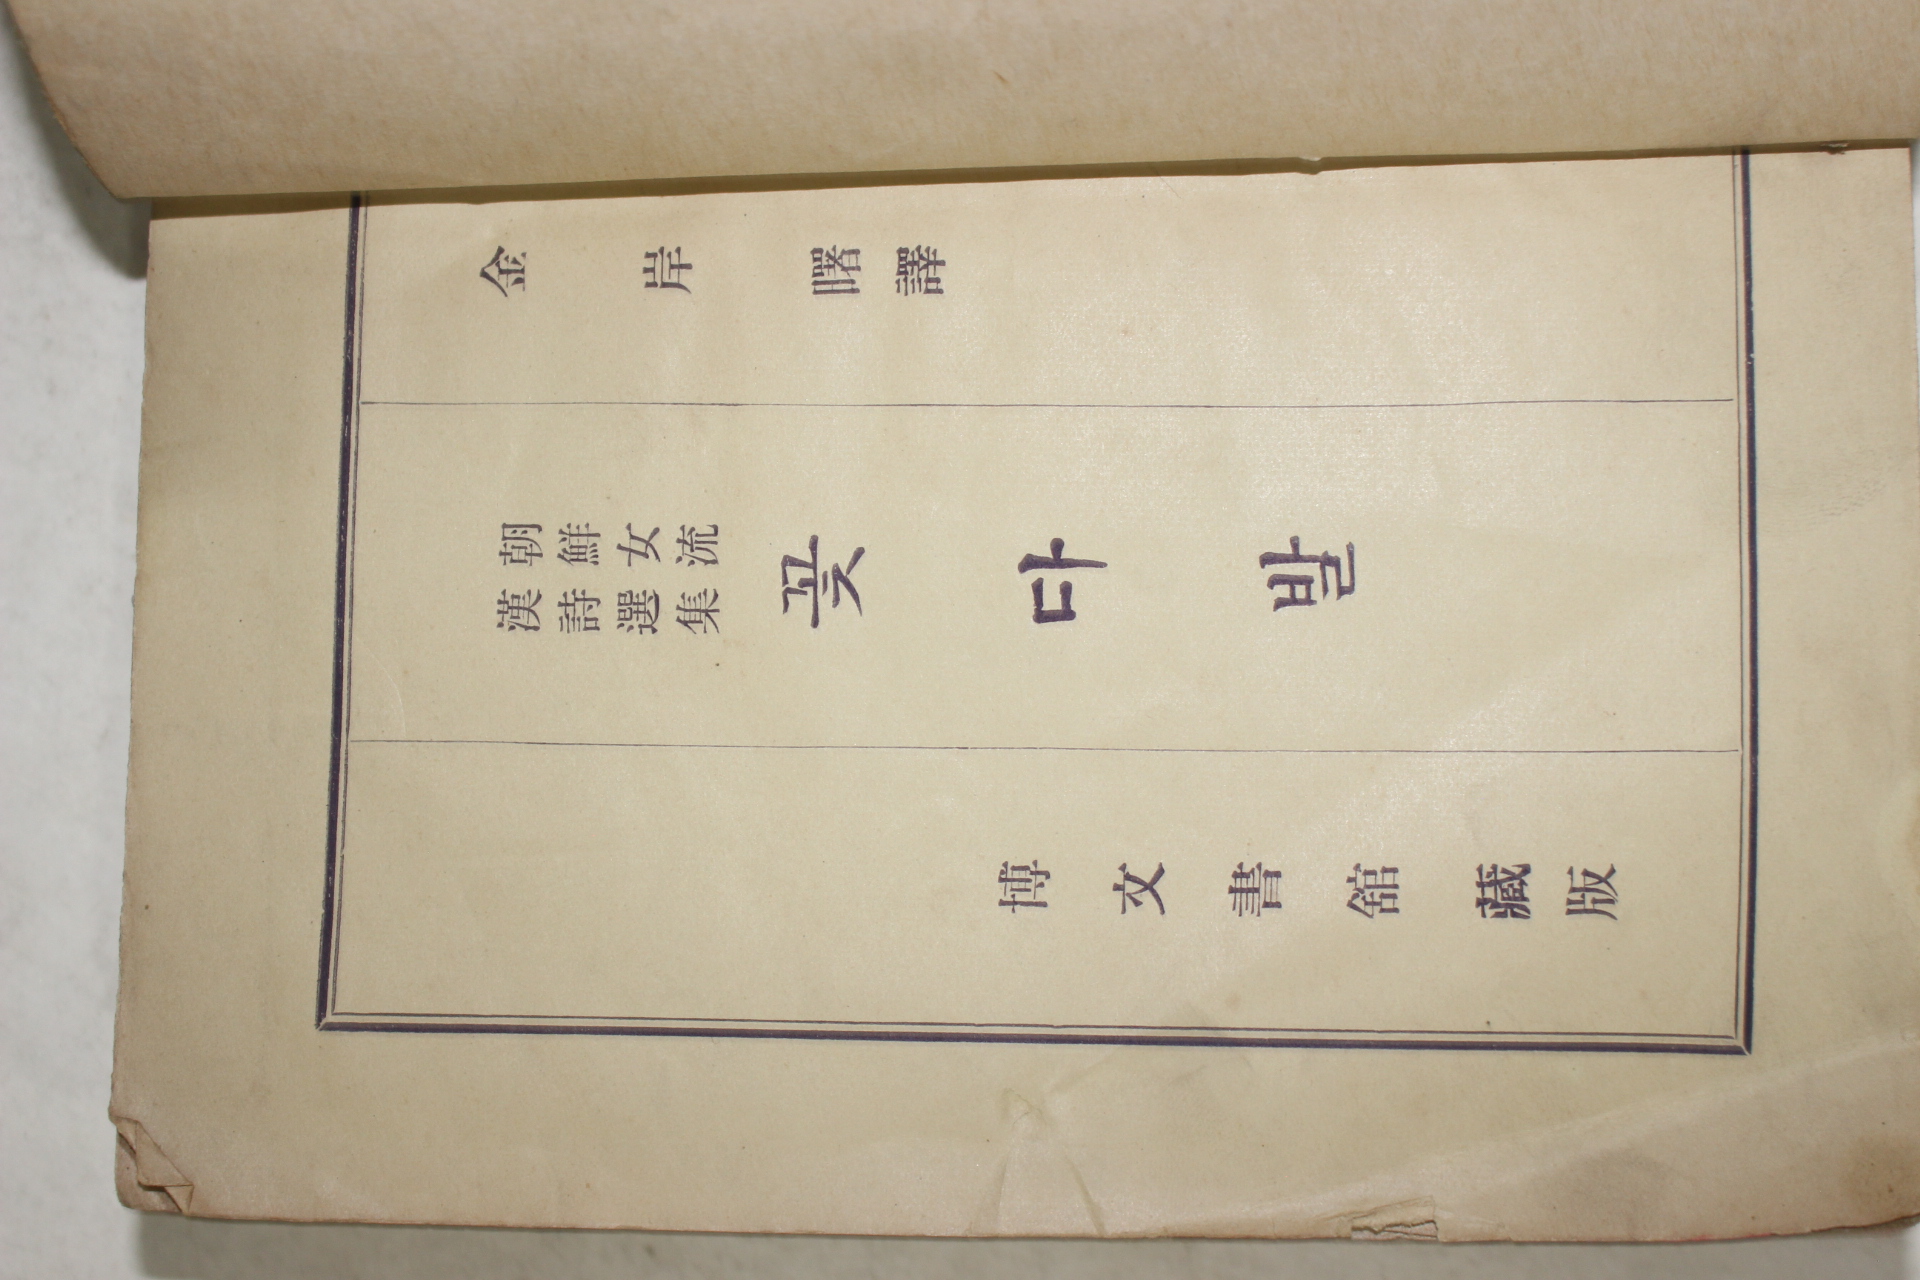 金岸曙譯
朝鮮女流
漢詩選集
꽃다발
博文書舘藏版